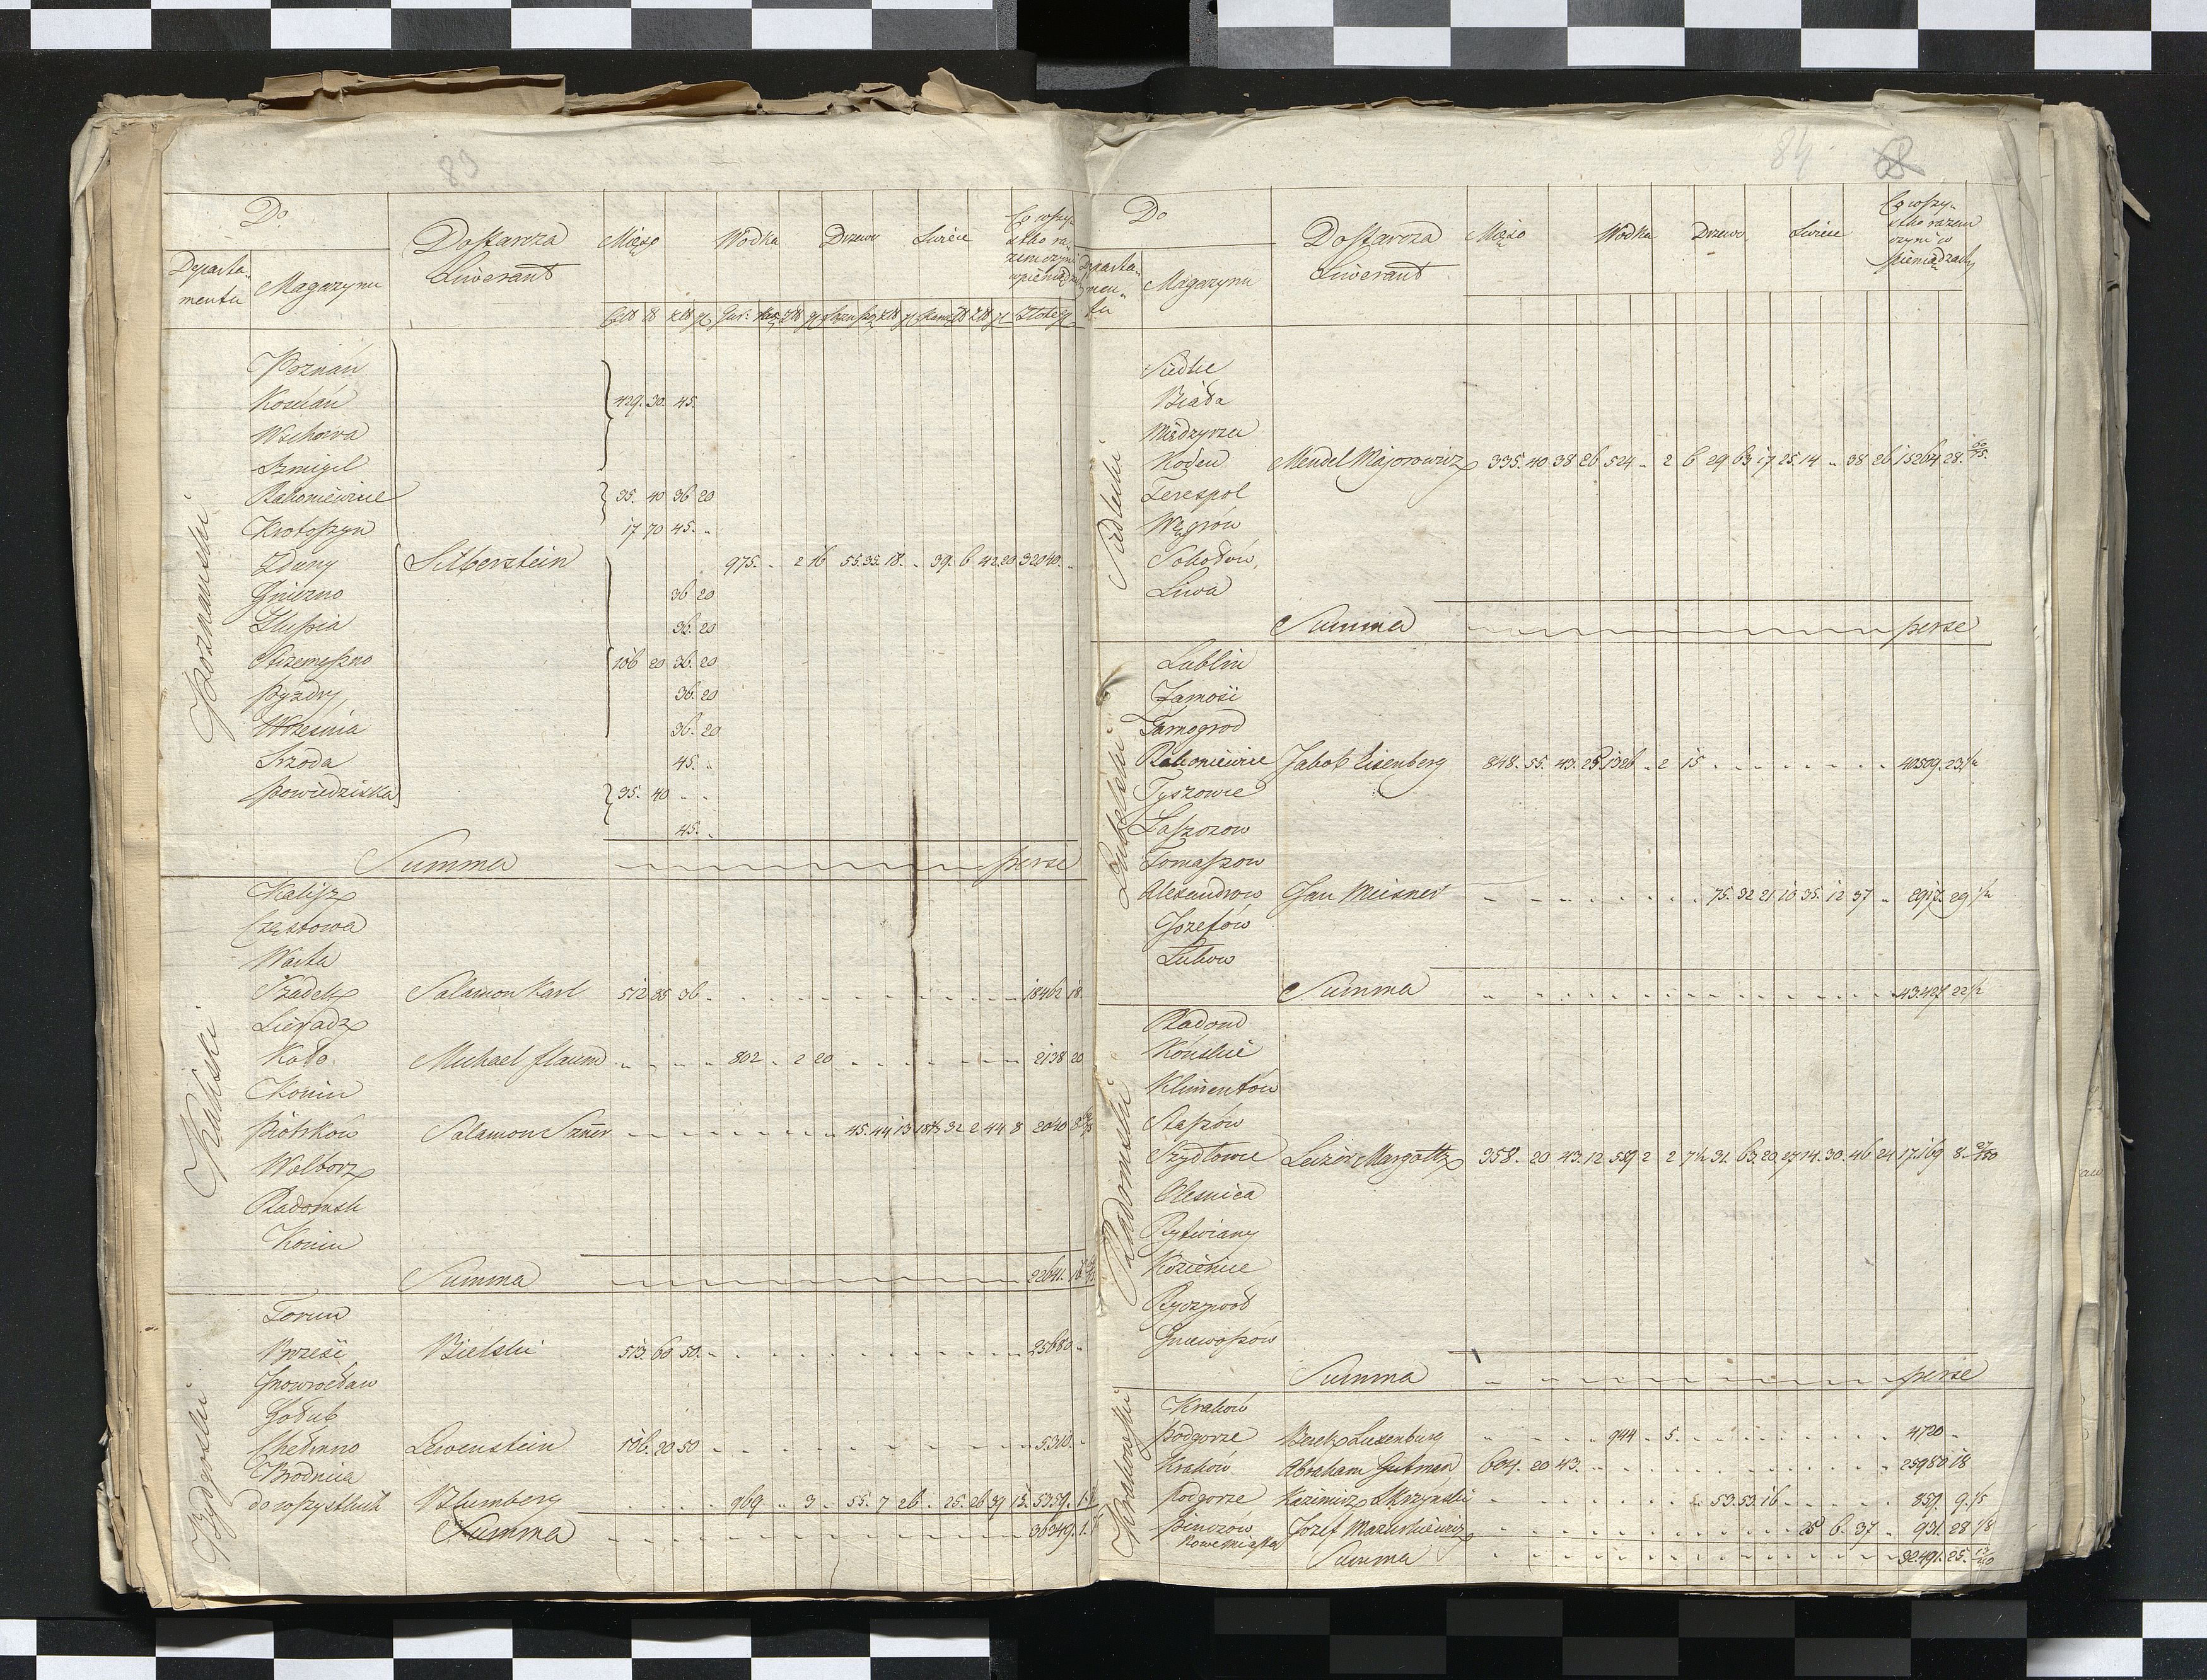 83
Do
Departamentu
Magazynu
Dostarcza
Liwerant
Mięso
Wódka
Drzewo
Świece
Co wszystko razem czyni w pieniądzach
Poznański
Poznań
Kościan 429. 30. 45.
Wschowa
Szmigel
Rakoniewice 35. 40 36 20
Krotoszyn 17 70 45. "
Zduny Silberstein 975. - 2 16 55. 35. 18. - 39. 6 42. 20 32040. "
Gniezno 36 20
Słupia 36. 20
Strzemeszno 106 20 36. 20
Pyzdry 36. 20
Września 36. 20
Srzoda 45. "
Powiedziska 35. 40 - -
45. "
Summa perse
Kaliski
Kalisz
Częstowa
Warta
Szadek Salamon Karl 512 35 36 18462 18.
Sieradz
Koło Michael Flaum 802 - 2 20 2138 20
Konin
Piotrków Salamon 45. 44 13 32 2 44 8 2040
Wolborz
Radomsk
Konin
Summa 22641.
Bydgoski
Toruń
Brześć Bielski 513. 60 50. 25680 "
Inowrocław
Golub
Chełmno Lewenstein 106. 20 50 5310. -
Brodnica
do wszystkich Blumberg 969 - 3 - 55. 7 26 - 25. 26 39 15. 5359. 1.
Summa 36349. 1.
84 68
Do
Departamentu
Magazynu
Dostarcza
Liwerant
Mięso
Wódka
Drzewo
Świece
Co wszystko razem czyni w pieniądzach
Siedlecki
Siedlce
Biała
Międzyrzec
Kodeń Mendel Majorowicz 335. 40 38 26 524 - 2 6 29 63 17 25. 14 - 38 26 15264 28.
Terespol
Węgrów
Sokołów,
Liwa
Summa perse
Lubelski
Lublin
Zamość
Tarnogrod
Rakoniewice Jakob Eisenberg 848. 55. 43. 25 1326 - 2 15 40509. 23 1/2
Tyszowce
Łaszczow
Tomaszow
Alexandrow Jan Meisner 75. 32 21 10 35. 12 37 - 2917. 29 1/2
Jozefów
Łuków
Summa 43.427 22 1/2
Radomski
Radom
Końskie
Klimentów
Stapów
Szydłowiec Leizor Margottz 358. 20 43. 12 589 2 2 31. 63. 20 14. 30. 46 24 17.169 8.
Olesnica
Rytwiany
Kozienice
Ryczywoł
Gniewoszów
Summa perse
Krakowski
Kraków
Podgorze Berek Luxenburg 944 - 5 4720 -
Kraków Abraham Gutman 604. 20 43. 25980 18
Podgorze Kazimierz Skrzynski 53. 53. 16 859. 9. 1/5
Pinczów
Nowe Miasto Jozef Mazurkiewicz 25 6. 37 - 931. 28 1/8
Summa 32.491. 25.